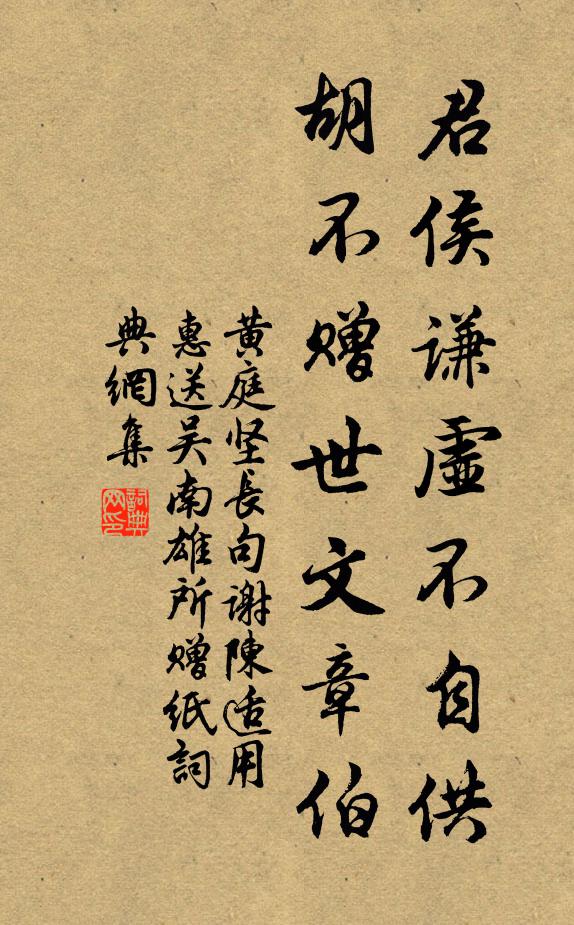 君侯谦虚不自供
胡不赠世文章伯
黄庭坚长句谢陳适用
惠送吴南雄所赠纸詞
典網集
詞典
网印